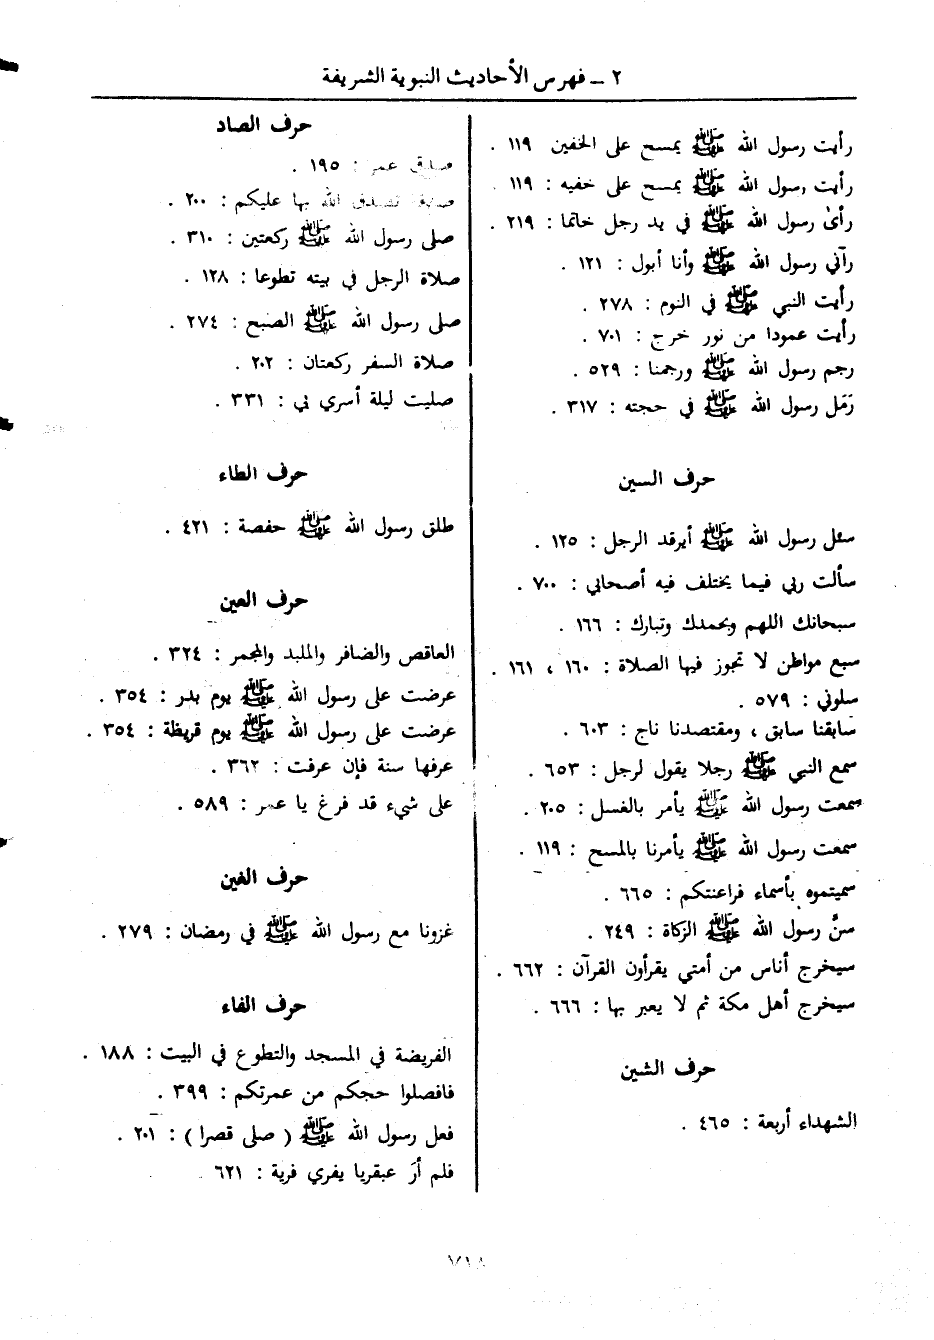 ٢ ــ فهرس الأحاديث النبوية الشريفة
رأيت رسول الله ﷺ يمسح على الخفين ١١٩ .
رأيت رسول الله ﷺ يمسح على خفيه : ١١٩ .
رأى رسول الله ﷺ في يد رجل خاتما : ٢١٩ .
رآني رسول الله ﷺ وأنا أبول : ١٢١ .
رأيت النبي ﷺ في النوم : ٢٧٨ .
رأيت عمودا من نور خرج : ٧٠١ .
رجم رسول الله ﷺ ورجمنا : ٥٢٩ .
رَمَل رسول الله ﷺ في حجته : ٣١٧ .
حرف السين
سئل رسول الله ﷺ أيرقد الرجل : ١٢٥ .
سألت ربي فيما يختلف فيه أصحابي : ٧٠٠ .
سبحانك اللهم وبحمدك وتبارك : ١٦٦ .
سبع مواطن لا تجوز فيها الصلاة : ١٦٠ ، ١٦١ .
سلوني : ٥٧٩ .
سابقنا سابق ، ومقتصدنا ناج : ٦٠٣ .
سمع النبي ﷺ رجلا يقول لرجل : ٦٥٣ .
سمعت رسول الله ﷺ يأمر بالغسل : ٢٠٥ .
سمعت رسول الله ﷺ يأمرنا بالمسح : ١١٩ .
سميتموه بأسماء فراعنتكم : ٦٦٥ .
سنَّ رسول الله ﷺ الزكاة : ٢٤٩ .
سيخرج أناس من أمتي يقرأون القرآن : ٦٦٢ .
سيخرج أهل مكة ثم لا يعبر بها : ٦٦٦ .
حرف الشين
الشهداء أربعة : ٤٦٥ .
حرف الصاد
صدق عمر : ١٩٥ .
صدقة تصدق الله بها عليكم : ٢٠٠ .
صلى رسول الله ﷺ ركعتين : ٣١٠ .
صلاة الرجل في بيته تطوعا : ١٢٨ .
صلى رسول الله ﷺ الصبح : ٢٧٤ .
صلاة السفر ركعتان : ٢٠٢ .
صليت ليلة أسري بي : ٣٣١ .
حرف الطاء
طلق رسول الله ﷺ حفصة : ٤٢١ .
حرف العين
العاقص والضافر والملبد والمجمر : ٣٢٤ .
عرضت على رسول الله ﷺ يوم بدر : ٣٥٤ .
عرضت على رسول الله ﷺ يوم قريظة : ٣٥٤ .
عرفها سنة فإن عرفت : ٣٦٢ .
على شيء قد فرغ يا عمر : ٥٨٩ .
حرف الغين
غزونا مع رسول الله ﷺ في رمضان : ٢٧٩ .
حرف الفاء
الفريضة في المسجد والتطوع في البيت : ١٨٨ .
فافصلوا حجكم من عمرتكم : ٣٩٩ .
فعل رسول الله ﷺ ( صلى قصرا ) : ٢٠١ .
فلم أرَ عبقريا يفري فرية : ٦٢١ .
٧١٨